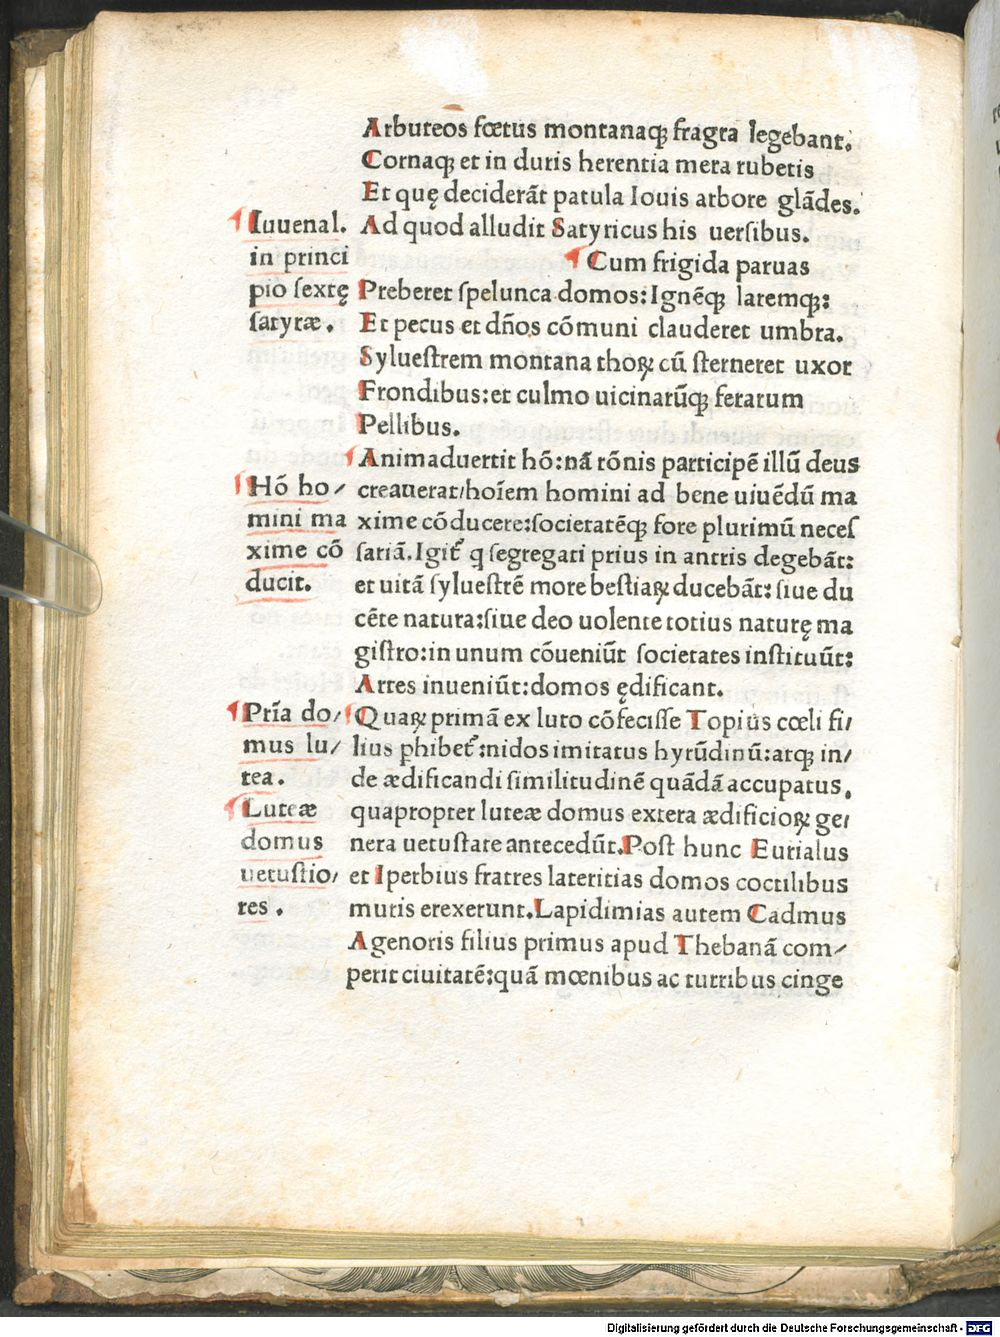 Arbuteos fœtus montanaqꝫ fragra legebant.
Cornaqꝫ et in duris herentia mera rubetis
Et quę deciderāt patula Iouis arbore glādes.
Ad quod alludit Satyricus his uersibus.
Cum frigida paruas
Preberet spelunca domos: Ignēqꝫ laremqꝫ:
Et pecus et dños cōmuni clauderet umbra.
Syluestrem montana thoꝝ cū sterneret uxor
Frondibus: et culmo uicinarūqꝫ ferarum
Pellibus.
Animaduertit hō: nā rōnis participē illū deus
creauerat/ hoīem homini ad bene uiuēdū ma
xime cōducere: societatēqꝫ fore plurimū neces
sariā. Igit᷑ q segregati prius in antris degebāt:
et uitā syluestrē more bestiaꝝ ducebāt: siue du
cēte natura: siue deo uolente totius naturę ma
gistro: in unum cōueniūt societates instituūt:
Artes inueniūt: domos ędificant.
Quaꝝ primā ex luto cōfecisse Topius cœli fi/
lius phibet᷑: nidos imitatus hyrūdinū: atqꝫ in/
de ædificandi similitudinē quādā accupatus.
quapropter luteæ domus extera ædificioꝝ ge/
nera uetustate antecedūt. Post hunc Eurialus
et Iperbius fratres lateritias domos coctilibus
muris erexerunt. Lapidimias autem Cadmus
Agenoris filius primus apud Thebanā com/
perit ciuitatē: quā mœnibus ac turribus cinge
Iuuenal.
in princi
pio sextę
satyræ.
Hō ho/
mini ma
xime cō
ducit.
Pría do/
mus lu/
tea.
Luteæ
domus
uetustio/
res.
Digitalisierung gefördert durch die Deutsche Forschungsgemeinschaft - DFG